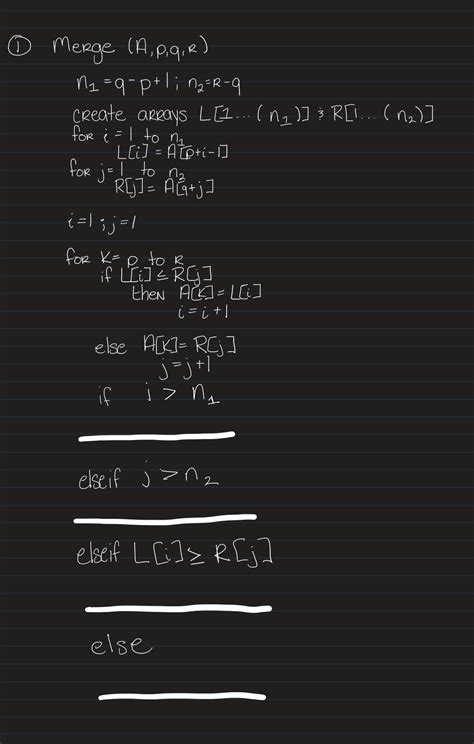 ① Merge (A,p,q,R)
n₁=q-p+1; n₂=R-q
create arrays L[1...(n₁)] & R[1...(n₂)]
for i=1 to n₁
L[i]=A[p+i-1]
for j=1 to n₂
R[j]=A[q+j]
i=1;j=1
for K=p to R
if L[i]≤R[j]
then A[K]=L[i]
i=i+1
else A[K]=R[j]
j=j+1
if i>n₁
elseif j>n₂
elseif L[i]≥R[j]
else